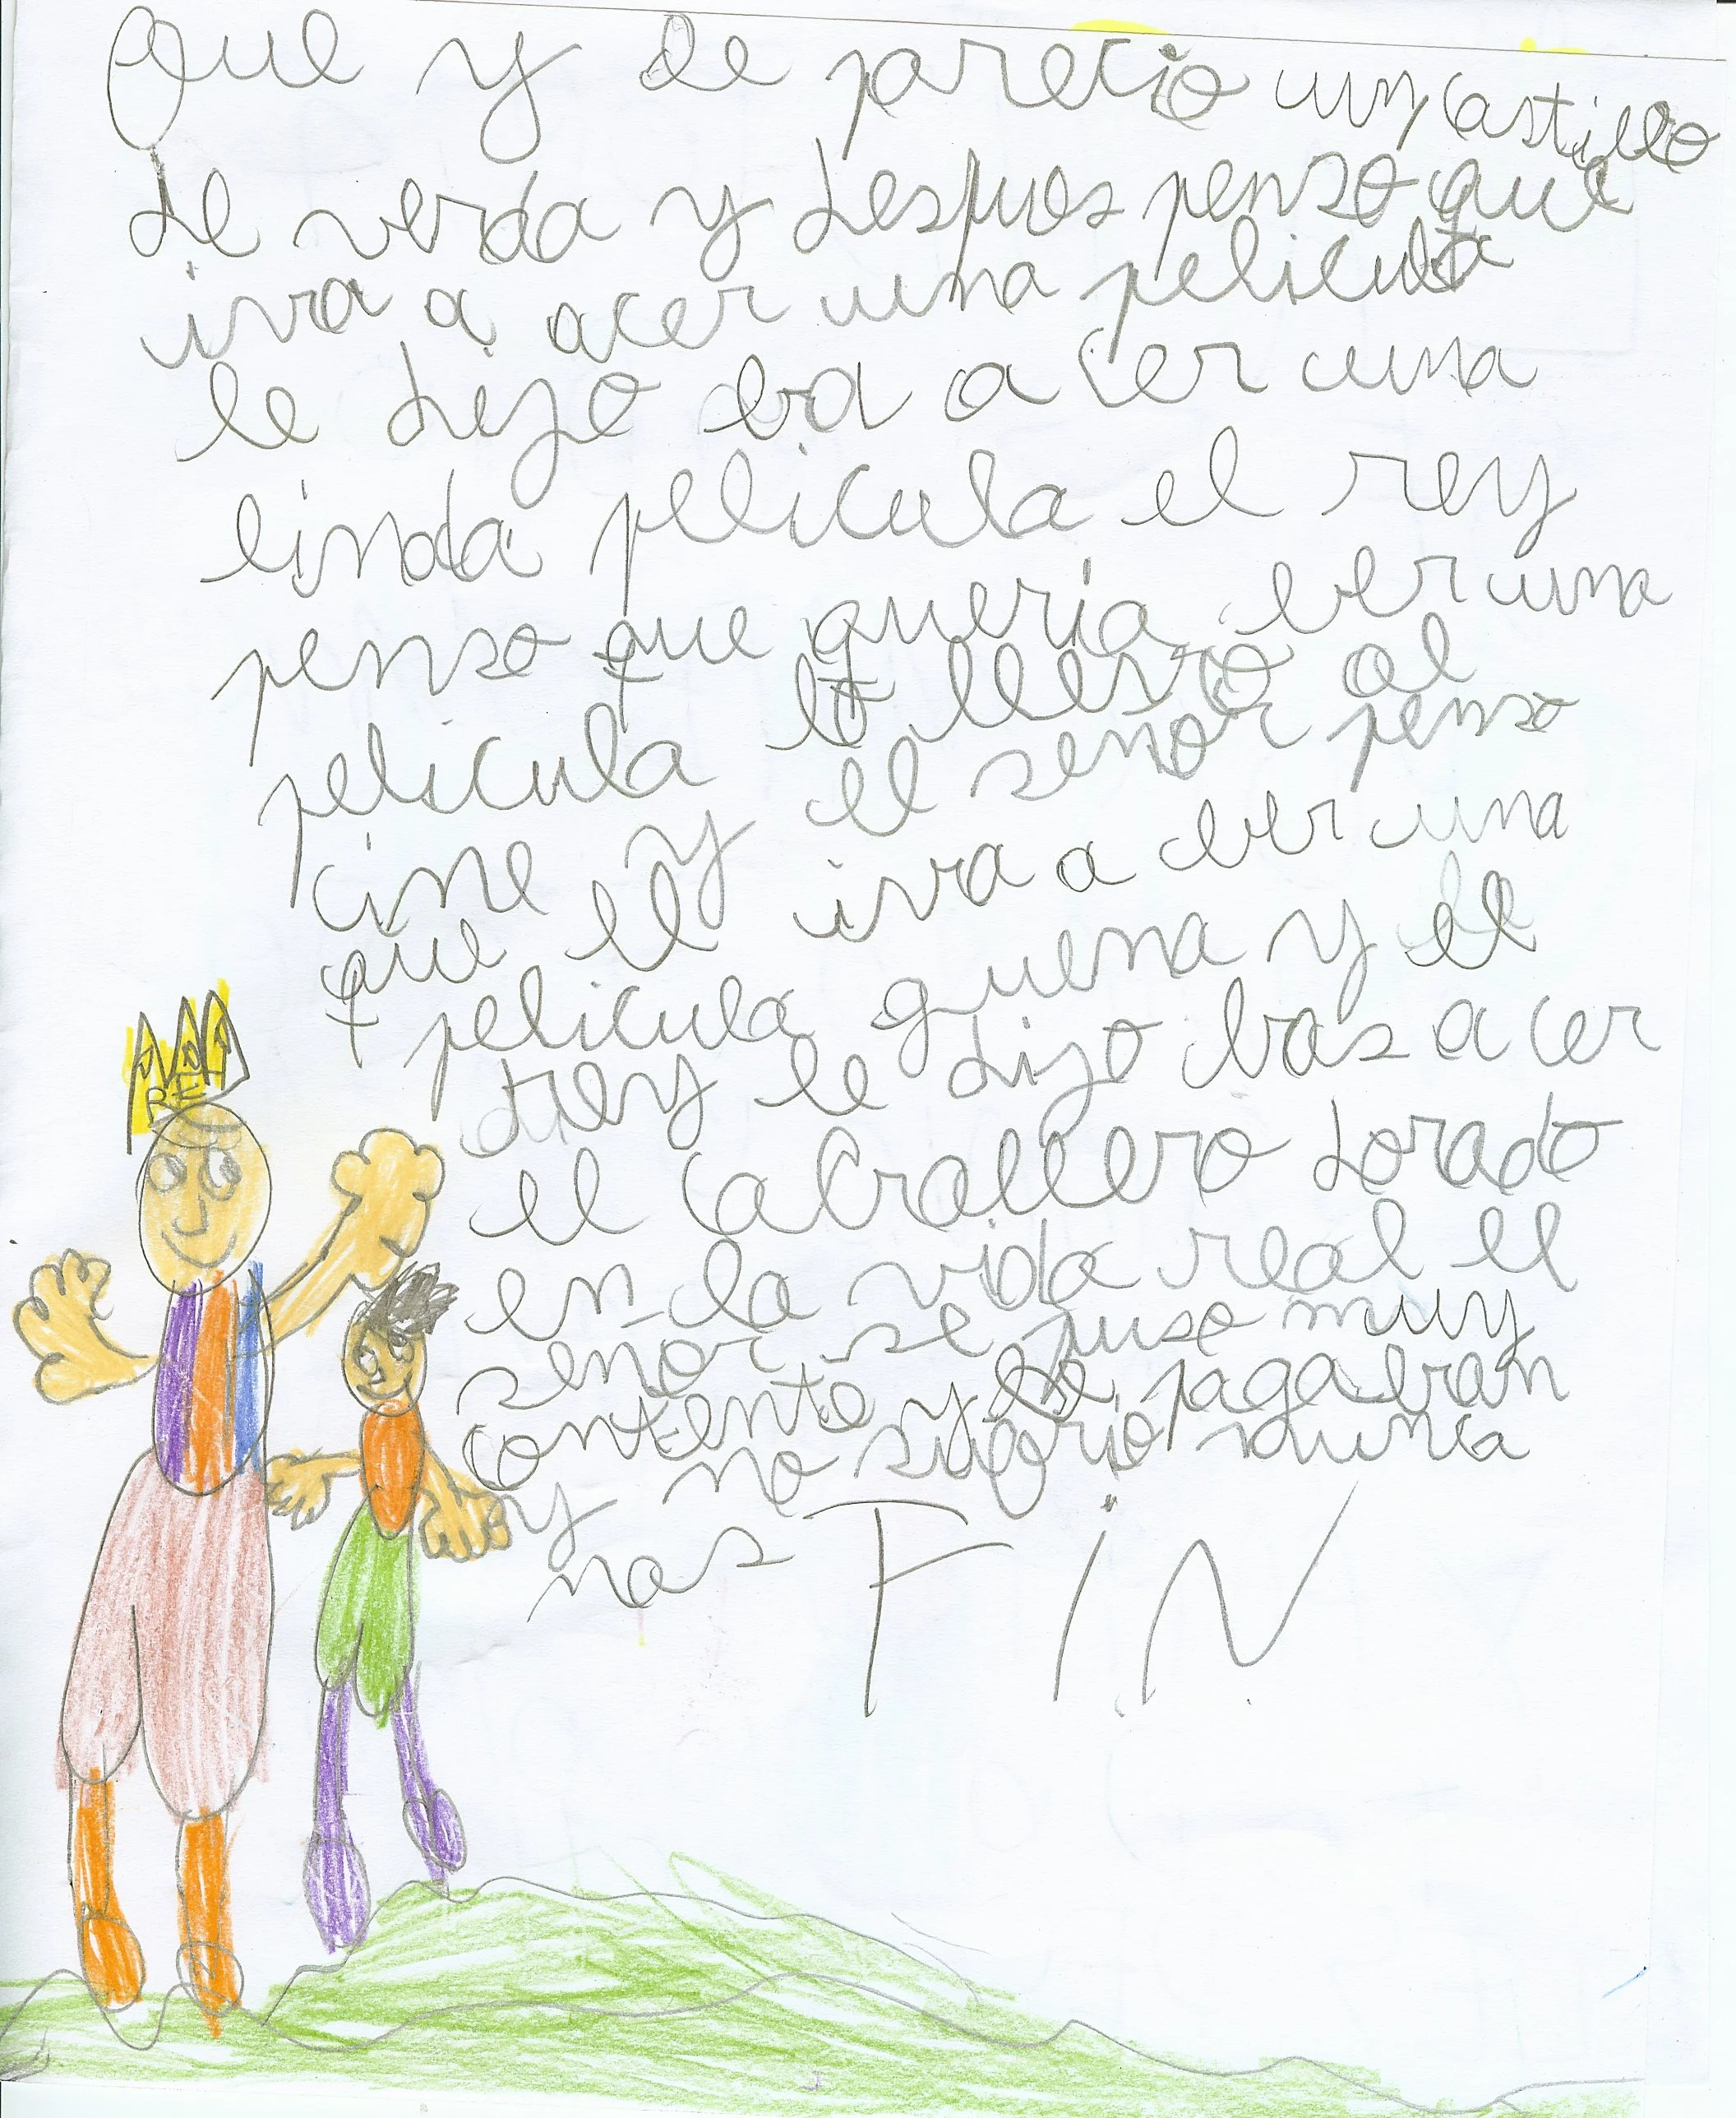 Que y de parecio un castillo
de verda y despues penso que
iva a acer una pelicula
le dijo ba a cer una
linda pelicula el rey
penso que queria ber una
pelicula lo llevo al
cine y el senor penso
que el iva a ber una
pelicula guena y el
rey le dijo bas a cer
el caballero dorado
en la vida real el
senor se puso muy
contento y le pagaban
y no sufrio nunca
mas FIN
REY